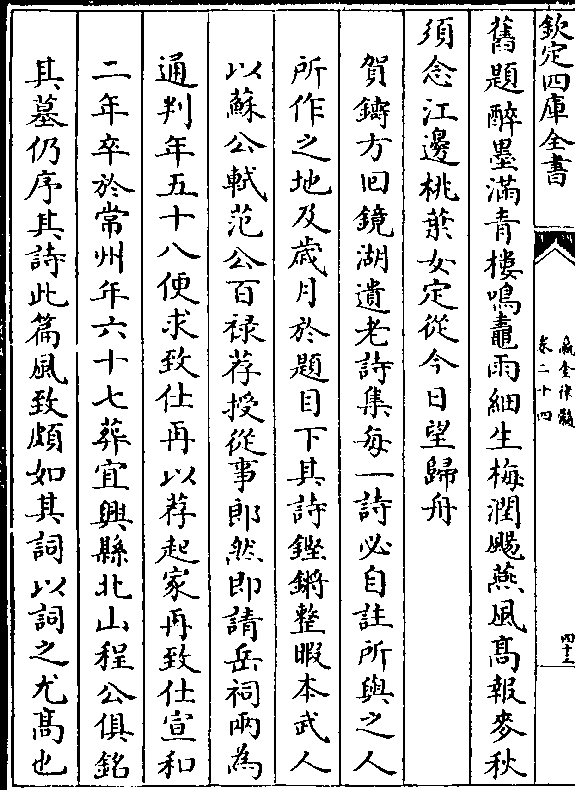 欽定四庫全書
瀛奎律髓
卷二十四
四十三
舊題醉墨滿青樓鳴鼉雨細生梅潤颺燕風高報麥秋
須念江邊桃葉女定從今日望歸舟
賀鑄方回鏡湖遺老詩集每一詩必自註所與之人
所作之地及歲月於題目下其詩鏗鏘整暇本武人
以蘇公軾范公百禄荐授從事郎然即請岳祠兩為
通判年五十八便求致仕再以荐起家再致仕宣和
二年卒於常州年六十七葬宜興縣北山程公俱銘
其墓仍序其詩此篇風致頗如其詞以詞之尤髙也